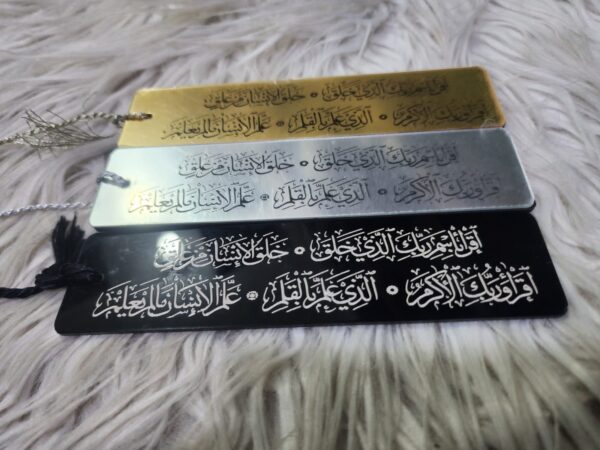 اقرأ باسم ربك الذي خلق ۝ خلق الإنسان من علق
اقرأ وربك الأكرم ۝ الذي علم بالقلم ۝ علم الإنسان ما لم يعلم
اقرأ باسم ربك الذي خلق ۝ خلق الإنسان من علق
اقرأ وربك الأكرم ۝ الذي علم بالقلم ۝ علم الإنسان ما لم يعلم
اقرأ باسم ربك الذي خلق ۝ خلق الإنسان من علق
اقرأ وربك الأكرم ۝ الذي علم بالقلم ۝ علم الإنسان ما لم يعلم